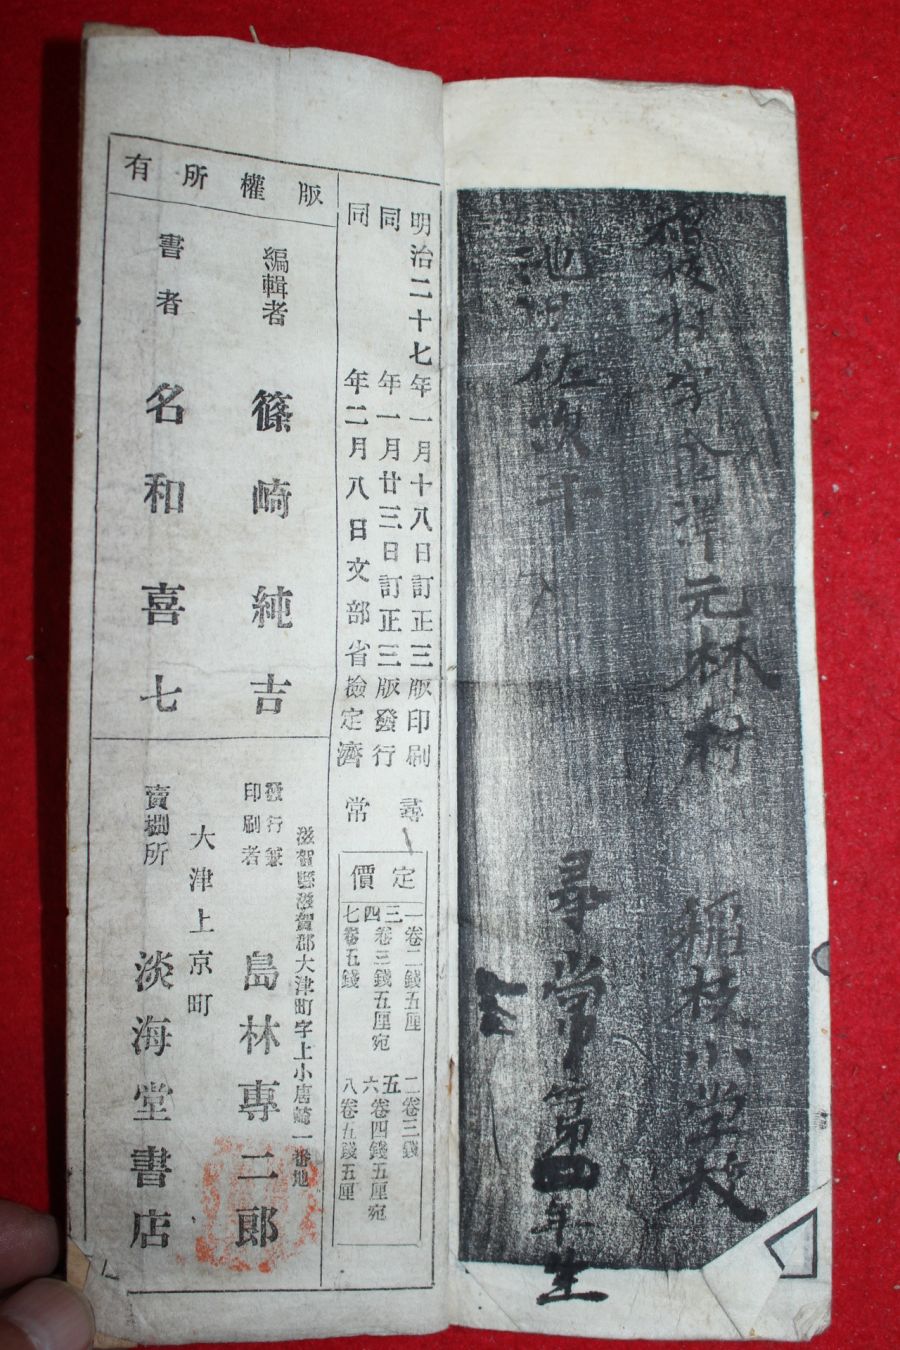 稲枝村字金澤元林村 稲枝小学校
池田佐次平
尋常第四年生
明治二十七年一月十八日訂正三版印刷
同年一月廿三日訂正三版發行
同年二月八日文部省檢定濟
尋常
定價
一卷二錢五厘 二卷三錢
三四卷三錢五厘宛 五六卷四錢五厘宛
七卷五錢 八卷五錢五厘
版權所有
編輯者 篠崎純吉
書者 名和喜七
滋賀縣滋賀郡大津町字上小唐崎一番地
發行兼印刷者 島林專二郎
大津上京町
賣捌所 淡海堂書店